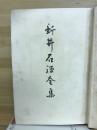 新井石禪全集